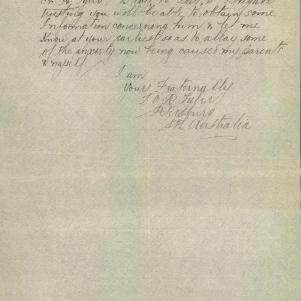 trusting you will be able to obtain some
information concerning him & let me
know at your earliest so as to allay some
of the anxiety now being caused my parents
& myself.
I am
Yours Fraternally
Petersburg
Sth Australia